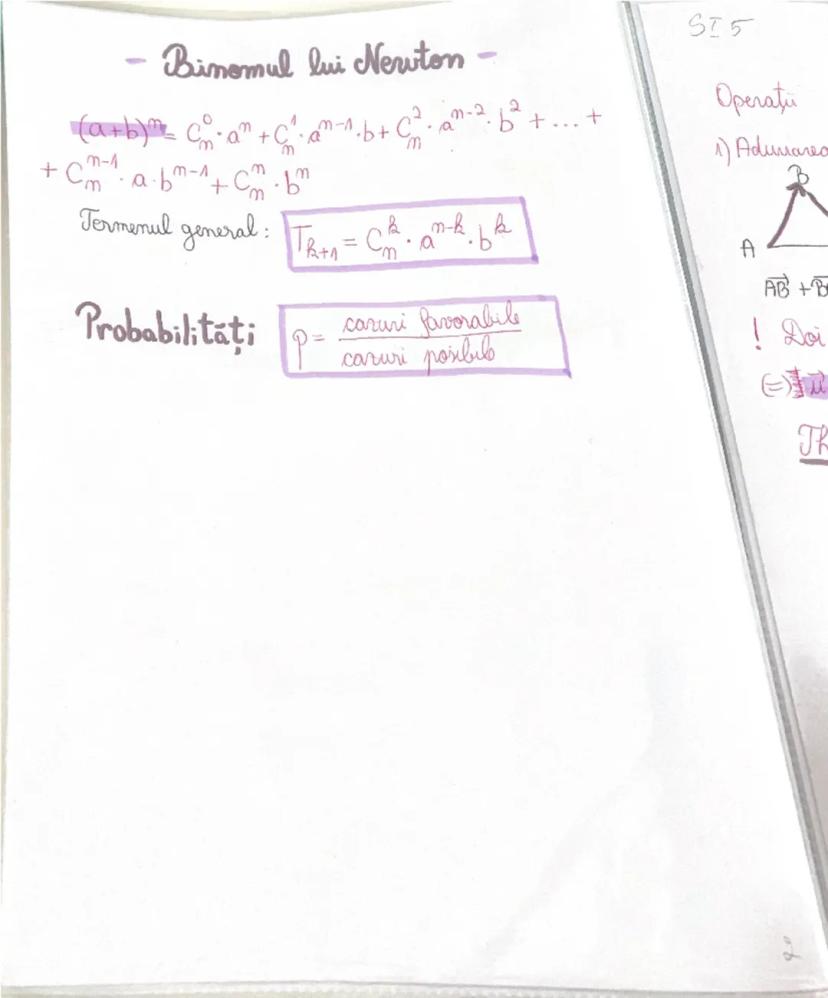 - Binomul lui Newton -
(a+b)ⁿ = Cₙ⁰·aⁿ + Cₙ¹·aⁿ⁻¹·b + Cₙ²·aⁿ⁻²·b² + ... +
+ Cₙⁿ⁻¹·a·bⁿ⁻¹ + Cₙⁿ·bⁿ
Termenul general: Tₖ₊₁ = Cₙᵏ·aⁿ⁻ᵏ·bᵏ
Probabilități p = cazuri favorabile
cazuri posibile
SI 5
Operații
1) Adunarea
B
A
AB + B
! Doi
(=) u
Th